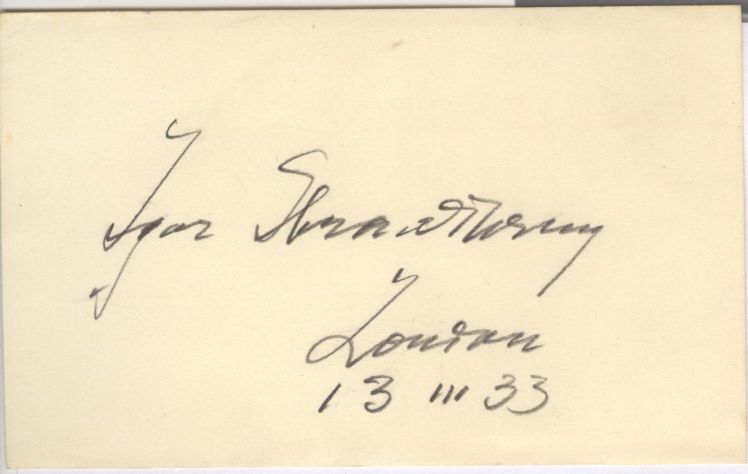 Igor Strawinsky
London
13 III 33